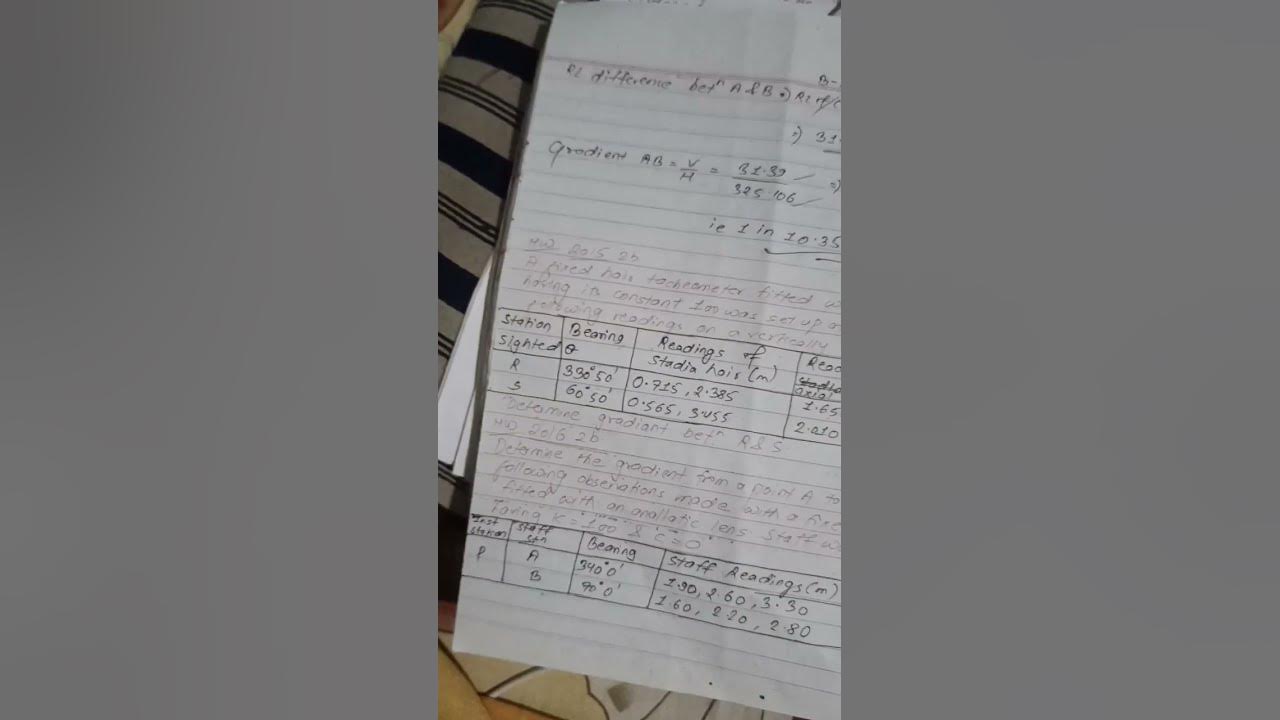 RL difference betn A & B
Gradient AB = V/H = 31.39/325.106
ie 1 in 10.35
HW 2015 2b
A fixed hair tacheometer fitted
having its constant 100 was set up
following readings on a vertically
Station Sighted | Bearing θ | Readings of Stadia hair (m)
R | 330°50' | 0.715, 2.385 | 1.65
S | 60°50' | 0.565, 3.455 | 2.010
Determine gradiant betn R & S
HW 2016 2b
Determine the gradient from a point A to
following observations made with a
fitted with an anallatic lens staff
Taking K = 100 & C = 0
Inst station | Staff stn | Bearing | Staff Readings (m)
P | A | 340°0' | 1.90, 2.60, 3.30
B | 70°0' | 1.60, 2.20, 2.80